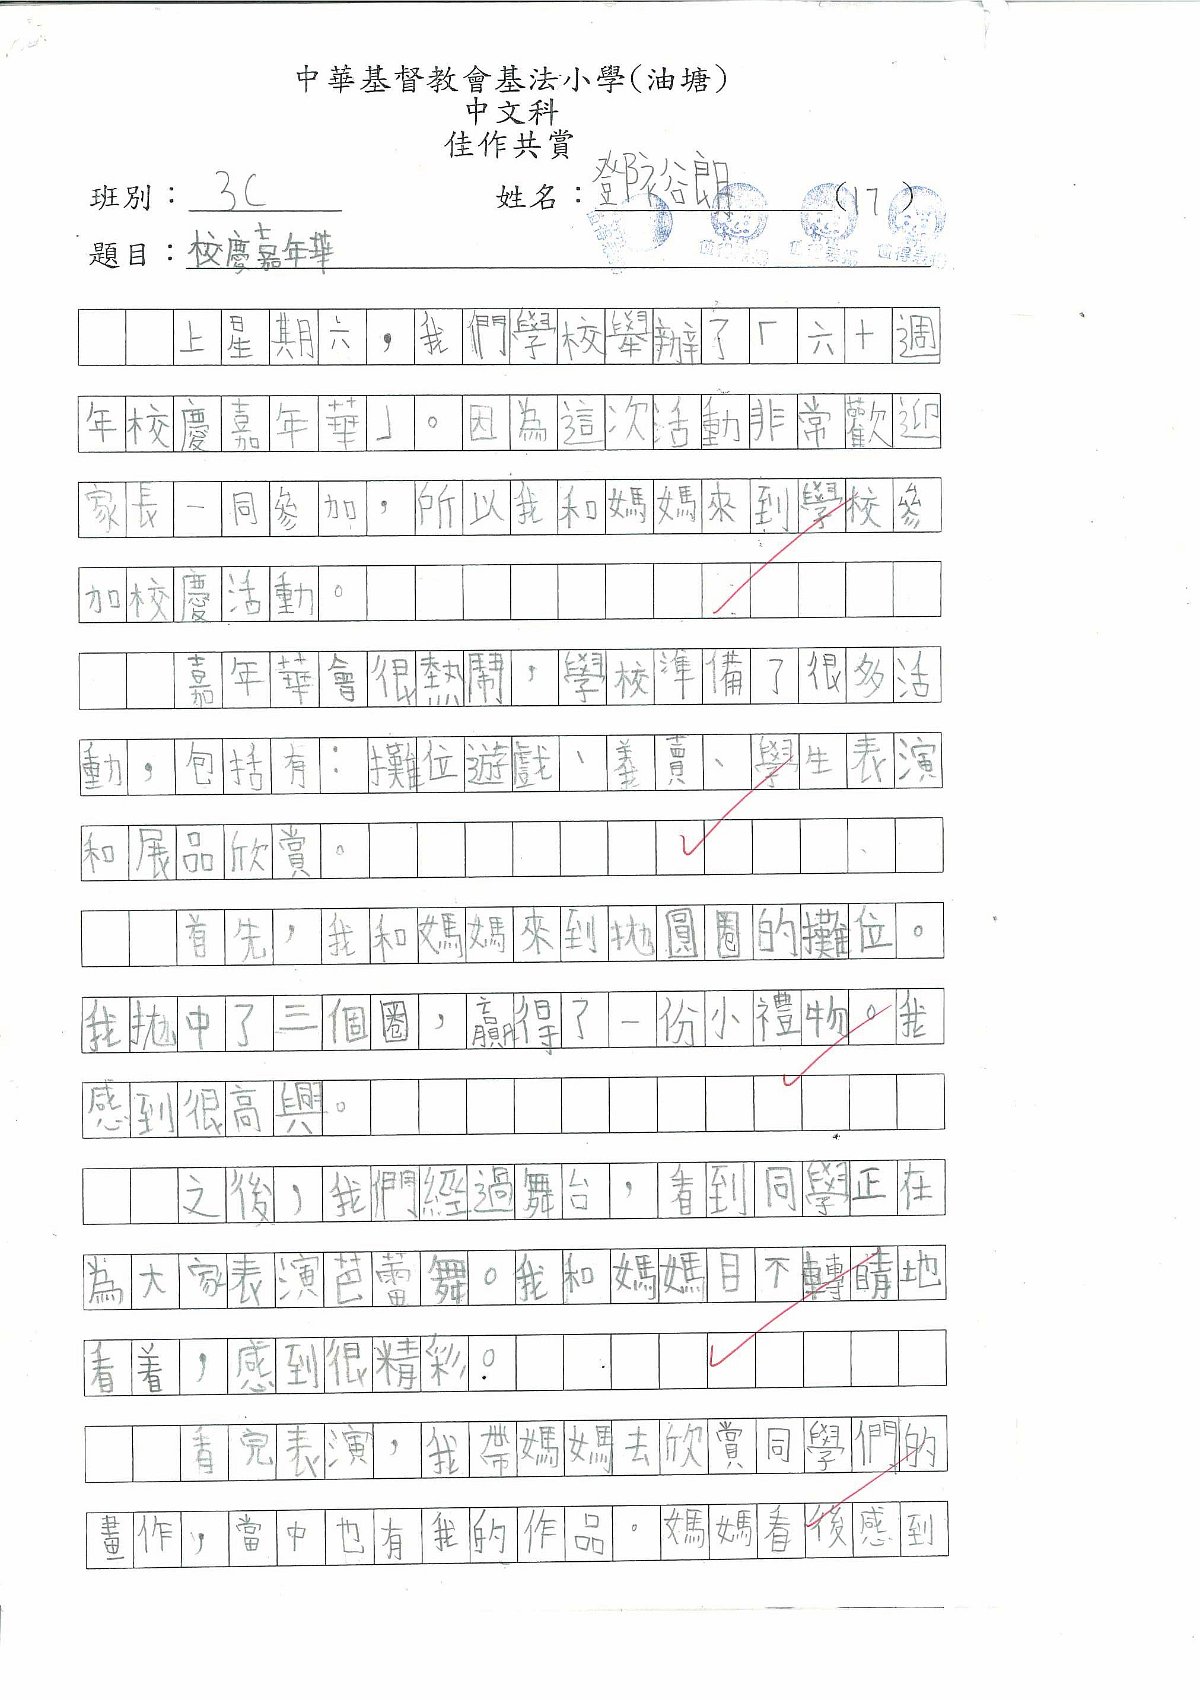 中華基督教會基法小學(油塘)
中文科
佳作共賞
班別：3C 姓名：鄧裕朗(17)
題目：校慶嘉年華
上星期六，我們學校舉辦了「六十週
年校慶嘉年華」。因為這次活動非常歡迎
家長一同參加，所以我和媽媽來到學校參
加校慶活動。
嘉年華會很熱鬧，學校準備了很多活
動，包括有：攤位遊戲、義賣、學生表演
和展品欣賞。
首先，我和媽媽來到拋圓圈的攤位。
我拋中了三個圈，贏得了一份小禮物。我
感到很高興。
之後，我們經過舞台，看到同學正在
為大家表演芭蕾舞。我和媽媽目不轉睛地
看着，感到很精彩。
看完表演，我帶媽媽去欣賞同學們的
畫作，當中也有我的作品。媽媽看後感到